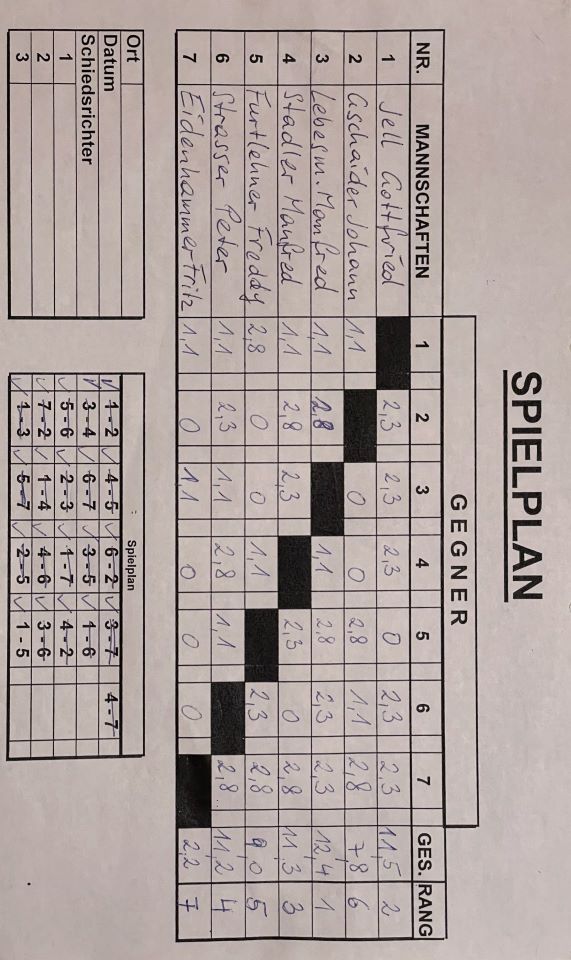 SPIELPLAN
GEGNER
NR. MANNSCHAFTEN 1 2 3 4 5 6 7 GES. RANG
1 Jell Gottfried 2,3 2,3 2,3 0 2,3 2,3 11,5 2
2 Gschaider Johann 1,1 0 0 2,8 1,1 2,8 7,8 6
3 Lebesm. Manfred 1,1 2,8 1,1 2,8 2,3 2,3 12,4 1
4 Stadler Manfred 1,1 2,8 2,3 2,3 0 2,8 11,3 3
5 Furtlehner Freddy 2,8 0 0 1,1 2,3 2,8 9,0 5
6 Strasser Peter 1,1 2,3 1,1 2,8 1,1 2,8 11,2 4
7 Eidenhammer Fritz 1,1 0 1,1 0 0 0 2,2 7
Ort
Datum
Schiedsrichter
1
2
3
Spielplan
1 - 2 4 - 5 6 - 2 3 - 7 4 - 7
3 - 4 6 - 7 3 - 5 1 - 6
5 - 6 2 - 3 1 - 7 4 - 2
7 - 2 1 - 4 4 - 6 3 - 6
1 - 3 5 - 7 2 - 5 1 - 5